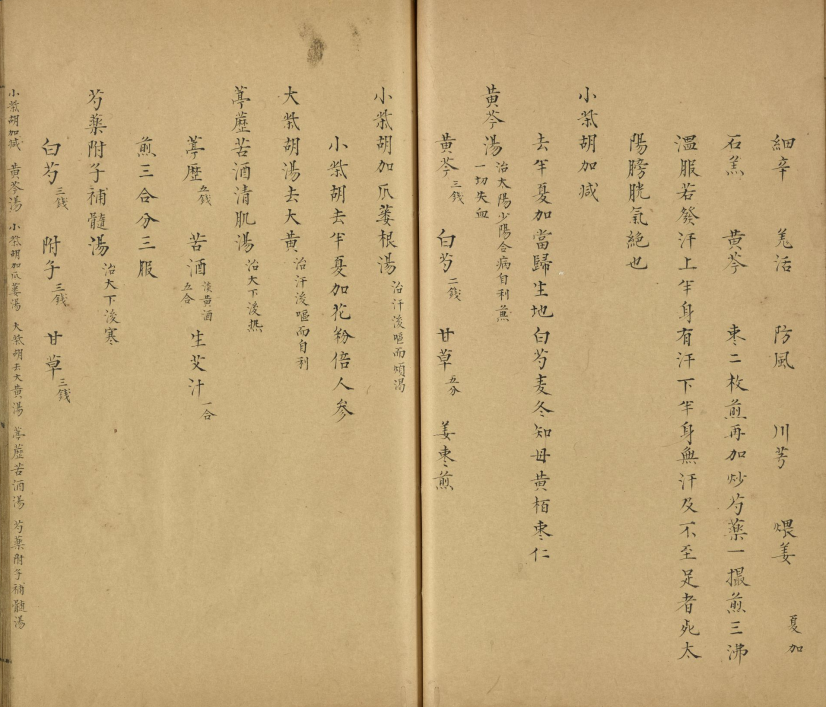 細辛 羗活 防風 川芎 煨姜 夏加
石羔 黄芩 棗二枚煎再加炒芍藥一撮煎三沸
溫服若發汗上半身有汗下半身無汗及不至足者死太
陽膀胱氣絕也
小柴胡加减
去半夏加當歸生地白芍麦冬知母黄栢棗仁
黄芩湯 治太陽少陽合病自利煎
一切失血
黄芩三錢 白芍二錢 甘草五分 姜棗煎
小柴胡加瓜蒌根湯 治汗後嘔而煩渴
小柴胡去半夏加花粉倍人參
大柴胡湯去大黄 治汗後嘔而自利
葶藶苦酒清肌湯 治大下後熱
葶歴五錢 苦酒後黄酒五合 生艾汁一合
煎三合分三服
芍藥附子補髓湯 治大下後寒
白芍三錢 附子三錢 甘草三錢
小柴胡加减 黄芩湯 小柴胡加瓜蒌湯 大柴胡去大黄湯 葶藶苦酒湯 芍藥附子補髓湯